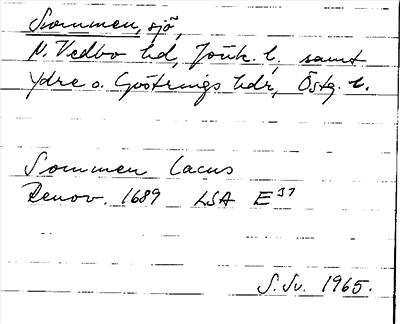 Sommen, sjö,
N. Vedbo hd, Jönk. l., samt
Ydre o. Göstrings hdr, Östg. l.
Sommen Lacus
Renov. 1689 LSA E 37
S. Sv. 1965.